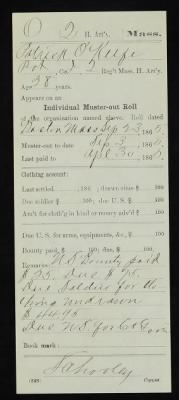 O 2 H. Art'y. Mass.
Patrick O'Keefe
Pvt., Co. 2 Reg't Mass. H. Art'y.
Age 38 years.
Appears on an
Individual Muster-out Roll
of the organization named above. Roll dated
Boston Mass Sep 23, 1865.
Muster-out to date Sep 3, 1865.
Last paid to Apl 30, 1865.
Clothing account:
Last settled, 186 ; drawn since $ 100
Due soldier $ 100; due U. S. $ 100
Am't for cloth'g in kind or money adv'd $ 100
Due U. S. for arms, equipments, &c., $ 100
Bounty paid $ 100; due $ 100
Remarks: U.S. Bounty paid
$ 25. Due $ 75.
Due Soldier for Clo
thing undrawn
$ 44.95
Due U.S. for
Book mark:
Copyist.